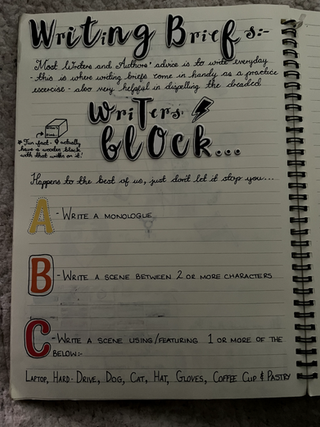 Writing Briefs:-
Most Writers and Authors' advice is to write everyday
- this is where writing briefs come in handy as a practice
exercise - also very helpful in dispelling the dreaded
Writers'
block...
* Fun fact - I actually
have a wooden block
with that written on it!
Happens to the best of us, just don't let it stop you...
A - Write a monologue
B - Write a scene between 2 or more characters
C - Write a scene using/featuring 1 or more of the
below:-
Laptop, Hard-Drive, Dog, Cat, Hat, Gloves, Coffee Cup & Pastry